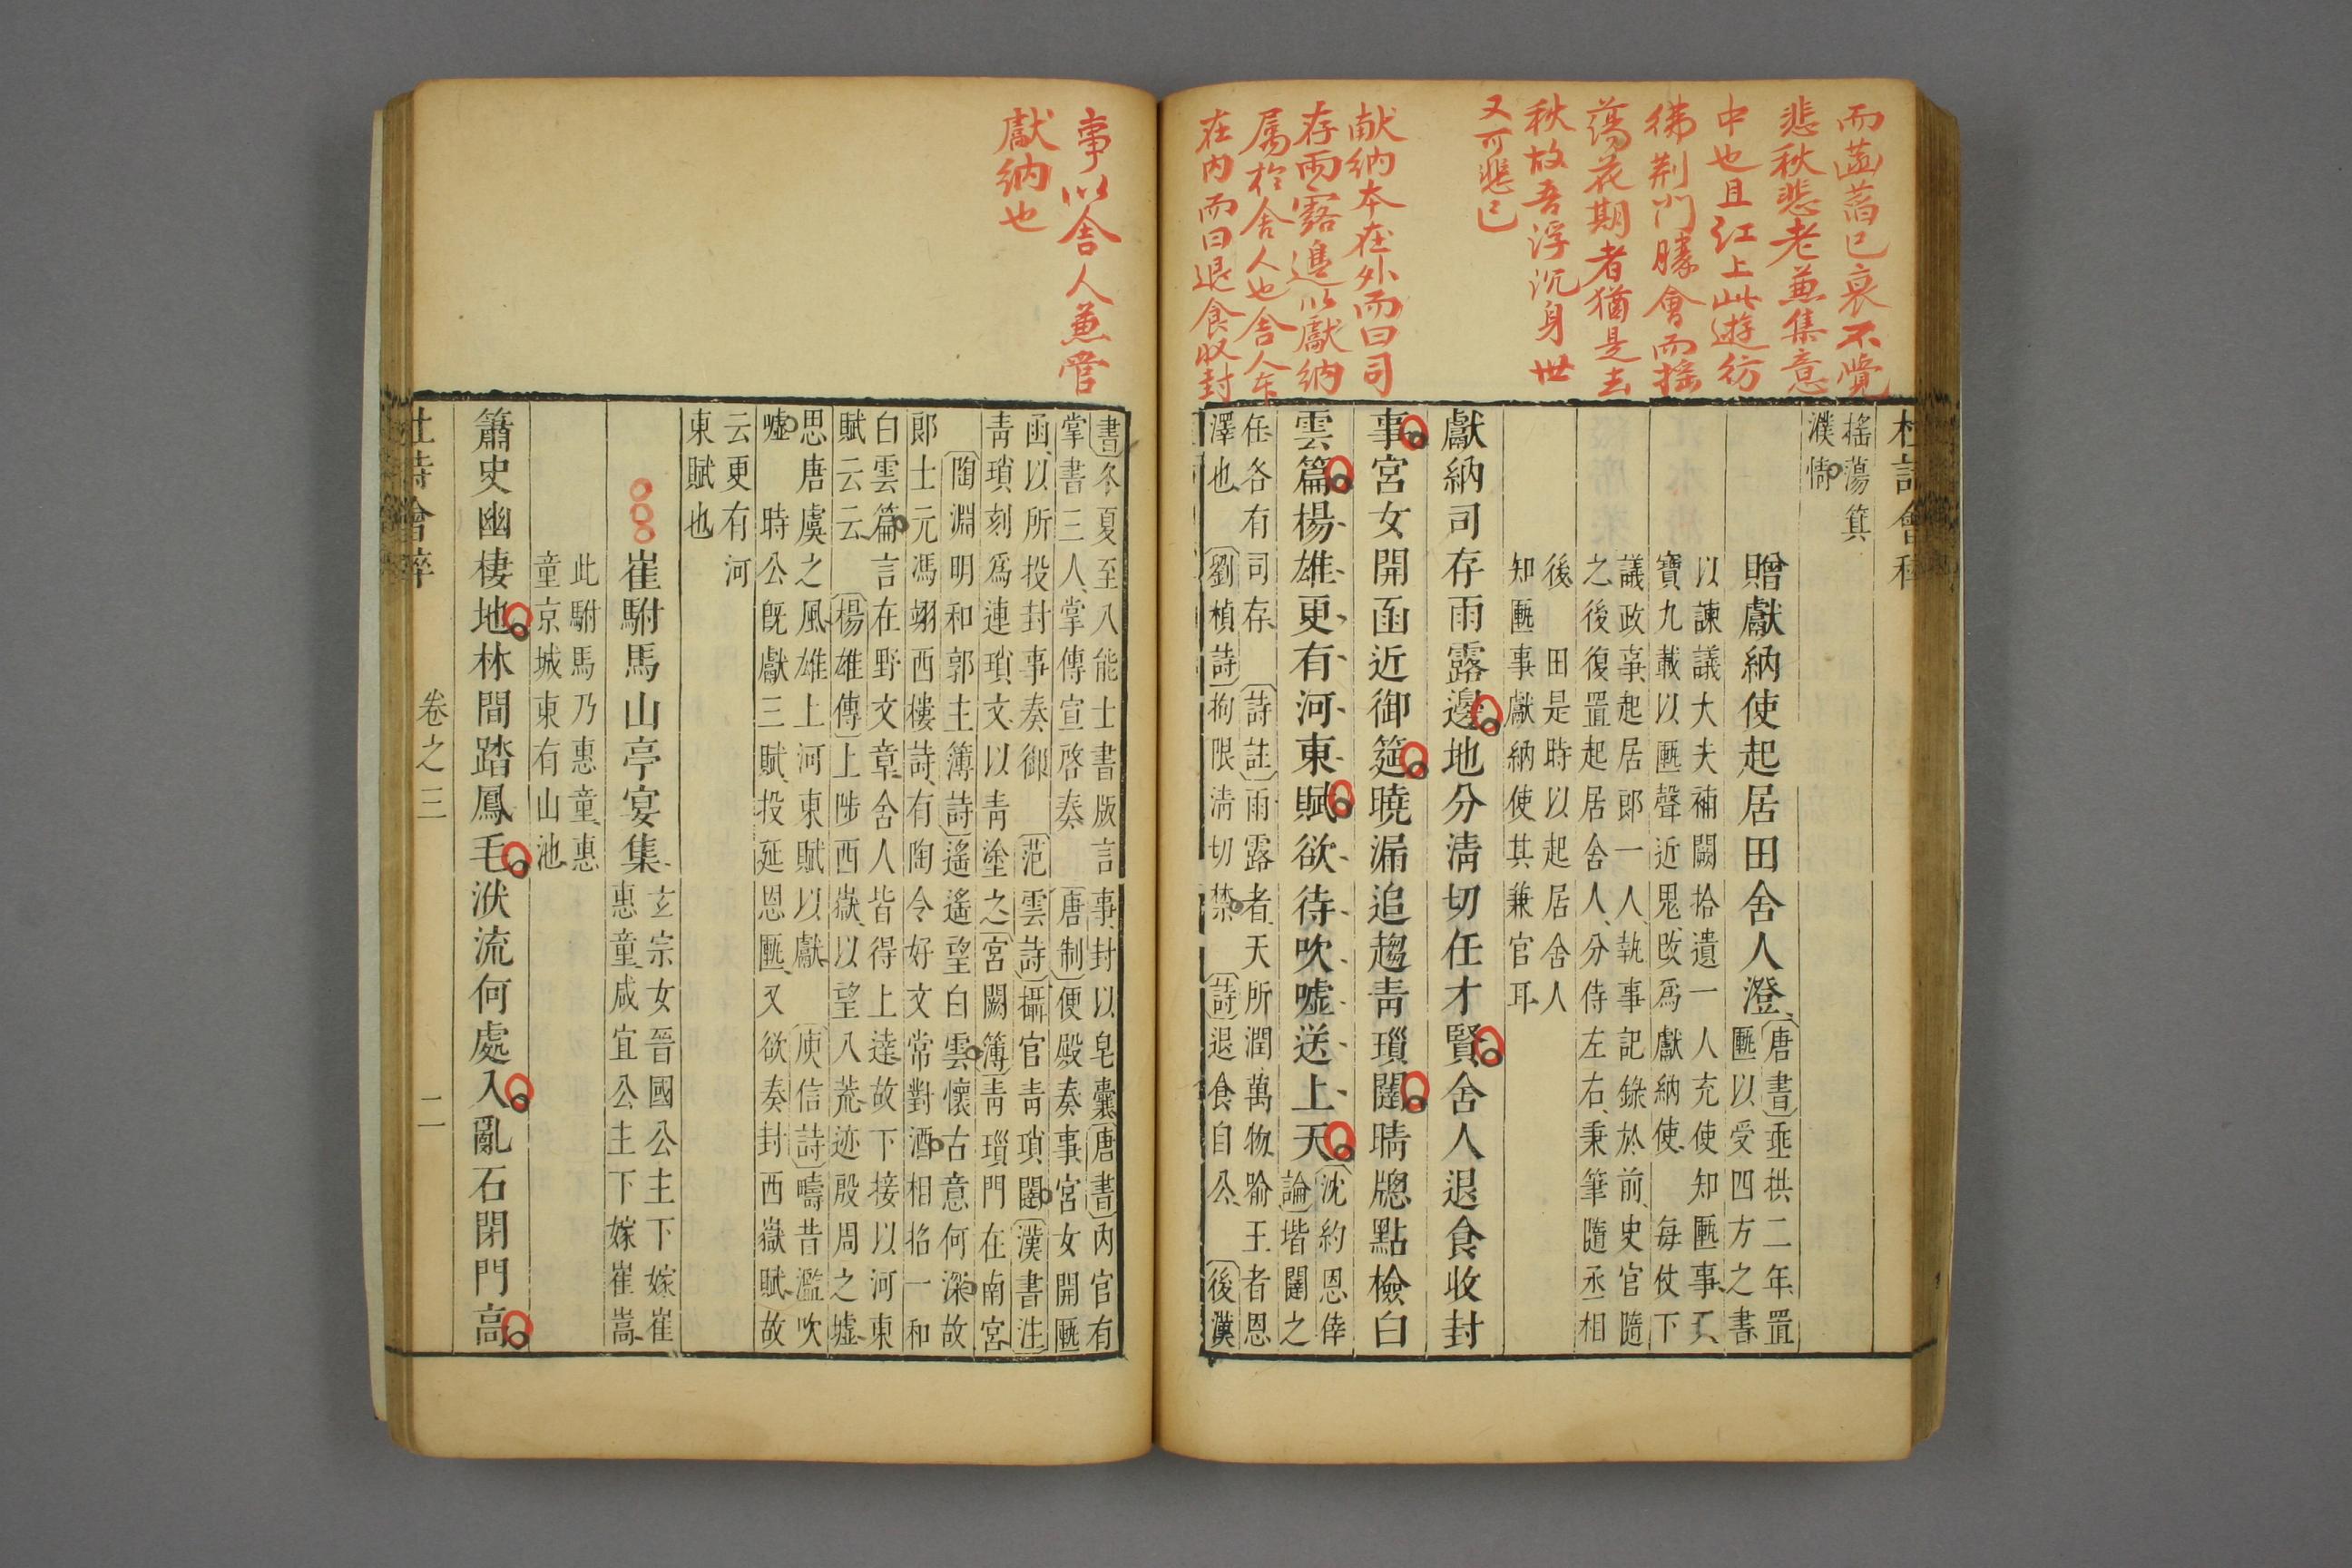 而菡萏已衰不覺
悲秋悲老兼集意
中也且江上此遊彷
彿荆門勝會而摇
蕩花期者猶是去
秋故吾浮沉身世
又可悲已
献納本在外而曰司
存雨露邉以獻納
属於舍人也舍人本
在内而曰退食收封
搖蕩箕
濮情
贈獻納使起居田舍人澄
〔唐書〕垂拱二年置
匭以受四方之書
以諫議大夫補闕拾遺一人充使知匭事天
寶九載以匭聲近鬼改爲獻納使 每仗下
議政事起居郎一人執事記錄於前史官隨
之後復置起居舍人分侍左右秉筆隨丞相
後 田是時以起居舍人
知匭事獻納使其兼官耳
獻納司存雨露邊地分淸切任才賢舍人退食收封
事宮女開函近御筵曉漏追趨青瑣闥晴牕點檢白
雲篇楊雄更有河東賦欲待吹噓送上天
〔沈約恩倖
論〕堦闥之
任各有司存 〔詩註〕雨露者天所潤萬物喻王者恩
澤也 〔劉楨詩〕拘限淸切禁 〔詩〕退食自公 〔後漢
事以舍人兼管
獻納也
書〕冬夏至八能士書版言事封以皂囊〔唐書〕内官有
掌書三人掌傳宣啓奏 〔唐制〕便殿奏事宮女開匭
函以所投封事奏御 〔范雲詩〕攝官青瑣闥〔漢書注〕
青瑣刻爲連瑣文以青塗之〔宮闕簿〕青瑣門在南宮
〔陶淵明和郭主簿詩〕遙遙望白雲懷古意何深故
郎士元馮翊西樓詩有陶令好文常對酒相招一和
白雲篇言在野文章舍人皆得上達故下接以河東
賦云云 〔楊雄傳〕上陟西嶽以望八荒迹殷周之墟
思唐虞之風雄上河東賦以獻 〔庾信詩〕疇昔濫吹
噓 時公旣獻三賦投延恩匭又欲奏封西嶽賦故
云更有河
東賦也
崔駙馬山亭宴集
玄宗女晉國公主下嫁崔
惠童咸宜公主下嫁崔嵩
此駙馬乃惠童惠
童京城東有山池
簫史幽棲地林間踏鳳毛洑流何處入亂石閉門高
卷之三
二